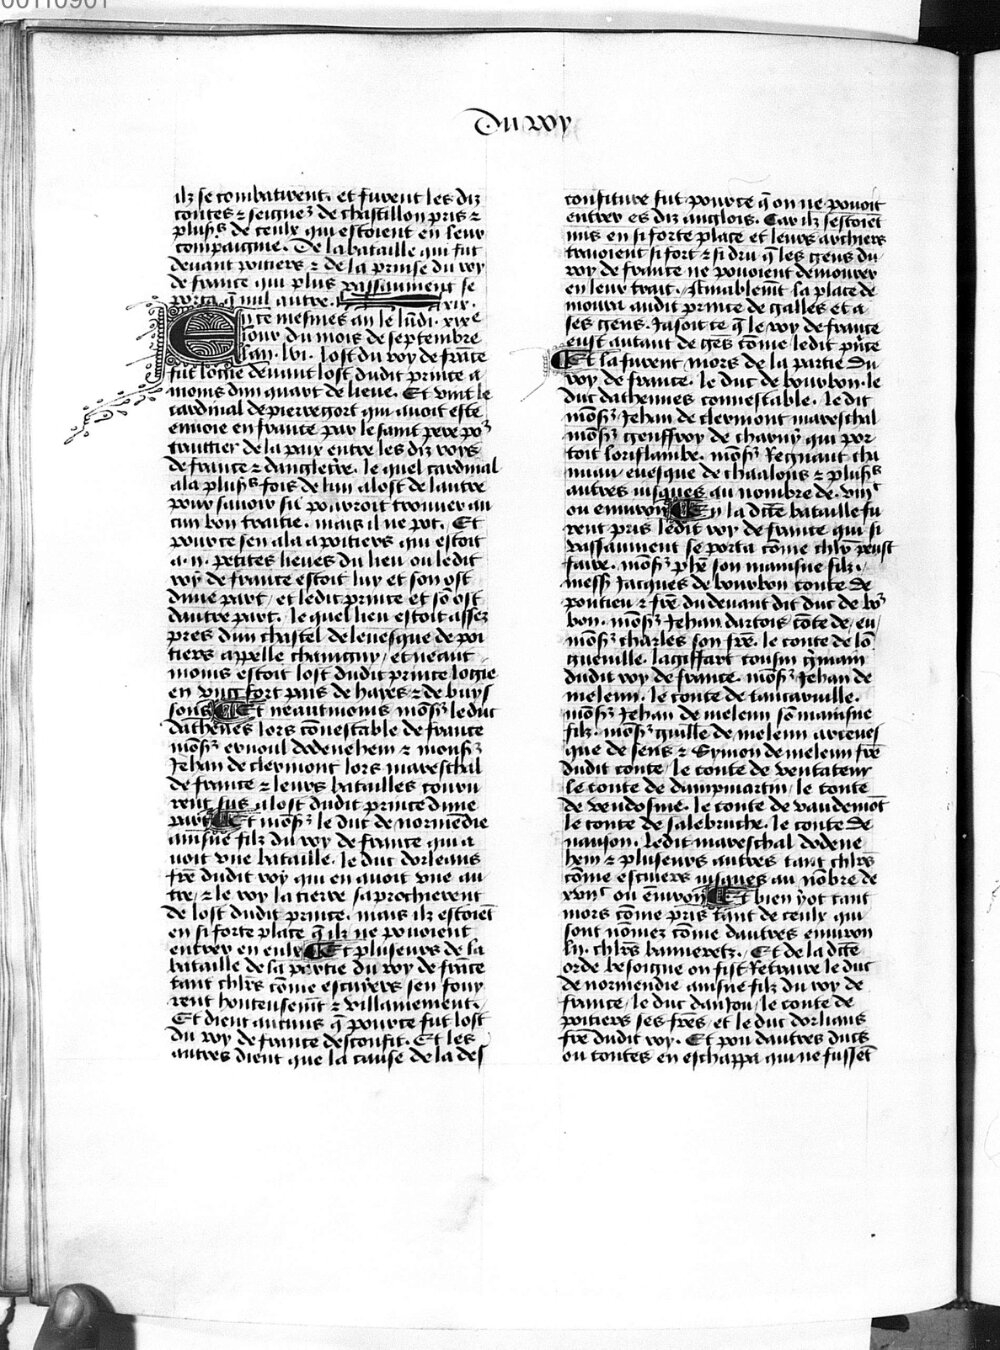 Du roy
ilz se combatirent. et furent les diz
contes ⁊ seignes de chastillon pris ⁊
plus⁹s de ceulx qui estoient en leur
compaignie. De la bataille qui fut
devant poitiers ⁊ de la prinse du roy
de france qui plus vassaument se
porta q̃ nul autre. xix.
En ce mesmes an le lũdi. xixe
jour du mois de septembre
lan. lvi. lost du roy de frãce
fut logie devant lost dudit prince a
moins dun quart de lieue. Et vint le
cardinal de pierregort qui avoit este
envoie en france par le saint pere po²
traittier de la paix entre les diz roys
de france ⁊ dangleterre. le quel cardinal
ala plus⁹s fois de lun a lost de lautre
pour savoir sil pourroit trouver au
cun bon traitie. mais il ne pot. Et
pource sen ala a poitiers qui estoit
a .ii. petites lieues du lieu ou ledit
roy de france estoit luy et son ost
dune part / et ledit prince et sõ ost
dautre part. le quel lieu estoit assez
pres dun chastel de levesque de poi
tiers appelle chauigny / et neaut
moins estoit lost dudit prince logie
en ung fort pais de hayes ⁊ de buys
sons Et neantmoins mõs² le duc
dathenes lors cõnestable de france
mõs² ernoul dodenehem ⁊ mons²
Jehan de clermont lors mareschal
de france ⁊ leurs batailles couru
rent sus a lost dudit prince dune
part Et mõs² le duc de normẽdie
ainsne filz du roy de france qui a
voit une bataille. le duc dorleans
fre dudit roy qui en avoit une au
tre / ⁊ le roy la tierce saprochierent
de lost dudit prince. mais ilz estoiẽt
en si forte place q̃ ilz ne povoient
entrer en eulx Et pluseurs de la
bataille de la partie du roy de frãce
tant chlrs cõme escuiers sen fouy
rent honteusem̃t ⁊ villainement.
Et dient aucuns q̃ pource fut lost
du roy de france desconfit. Et les
autres dient que la cause de la des
confiture fut pource q̃ on ne povoit
entrer es diz anglois. Car ilz sestoiẽt
mis en si forte place et leurs archiers
traioient si fort ⁊ si dru q̃ les gens du
roy de france ne povoient demourer
en leur trait. finablem̃t la place de
moura audit prince de galles et a
ses gens. Jasoit ce q̃ le roy de france
eust autant de gẽs cõme ledit prĩce
Et la furent mors de la partie du
roy de france. le duc de bourbon. le
duc dathennes connestable. le dit
mõs² Jehan de clermont mareschal
mõs² geuffroy de charny qui por
toit loriflambe. mõs² Regnaut cha
uiau / evesque de chaalons ⁊ plus⁹s
autres iusques au nombre de. viiic
ou environ En la dicte bataille fu
rent pris ledit roy de france qui si
vassaument se porta cõme chlr peust
faire. mõs² phẽ son mainsne filz.
mess² Jacques de bourbon conte de
pontieu ⁊ fre du devant dit duc de bo²
bon. mõs² Jehan dartois cõte de / eu /
mõs² charles son fre. le conte de lõ
gueville. lagiffart cousin g̃main
dudit roy de france. mõs² Jehan de
meleun. le conte de tancarville.
mõs² Jehan de meleun sõ mainsne
filz. mõs² guille de meleun arceves
que de sens ⁊ Symon de meleun fre
dudit conte / le conte de ventateur
le conte de dampmartin / le conte
de vendosme. le conte de vaudemõt
le conte de salebruche. le conte de
nanson. ledit mareschal dodene
hem ⁊ pluseurs autres tant chlrs
cõme escuiers iusques au nõbre de
xviic ou environ Et bien y ot tant
mors cõme pris tant de ceulx qui
sont nõmez cõme dautres environ
lii. chlrs banneretz. Et de la dicte
orde besoigne on fist Retraire le duc
de normendie ainsne filz du roy de
france / le duc danjou / le conte de
poitiers ses fres / et le duc dorliens
fre dudit roy. Et pou dautres ducs
ou contes en eschappa qui ne fussẽt